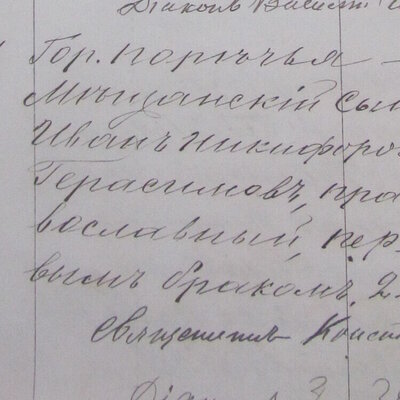 Діаконъ Васил
Гор. Порѣчья
Мѣщанскій сы
Иванъ Никифоро
Герасимовъ, пра
вославный, пер-
вымъ бракомъ. 2
Священникъ Конст
Діа